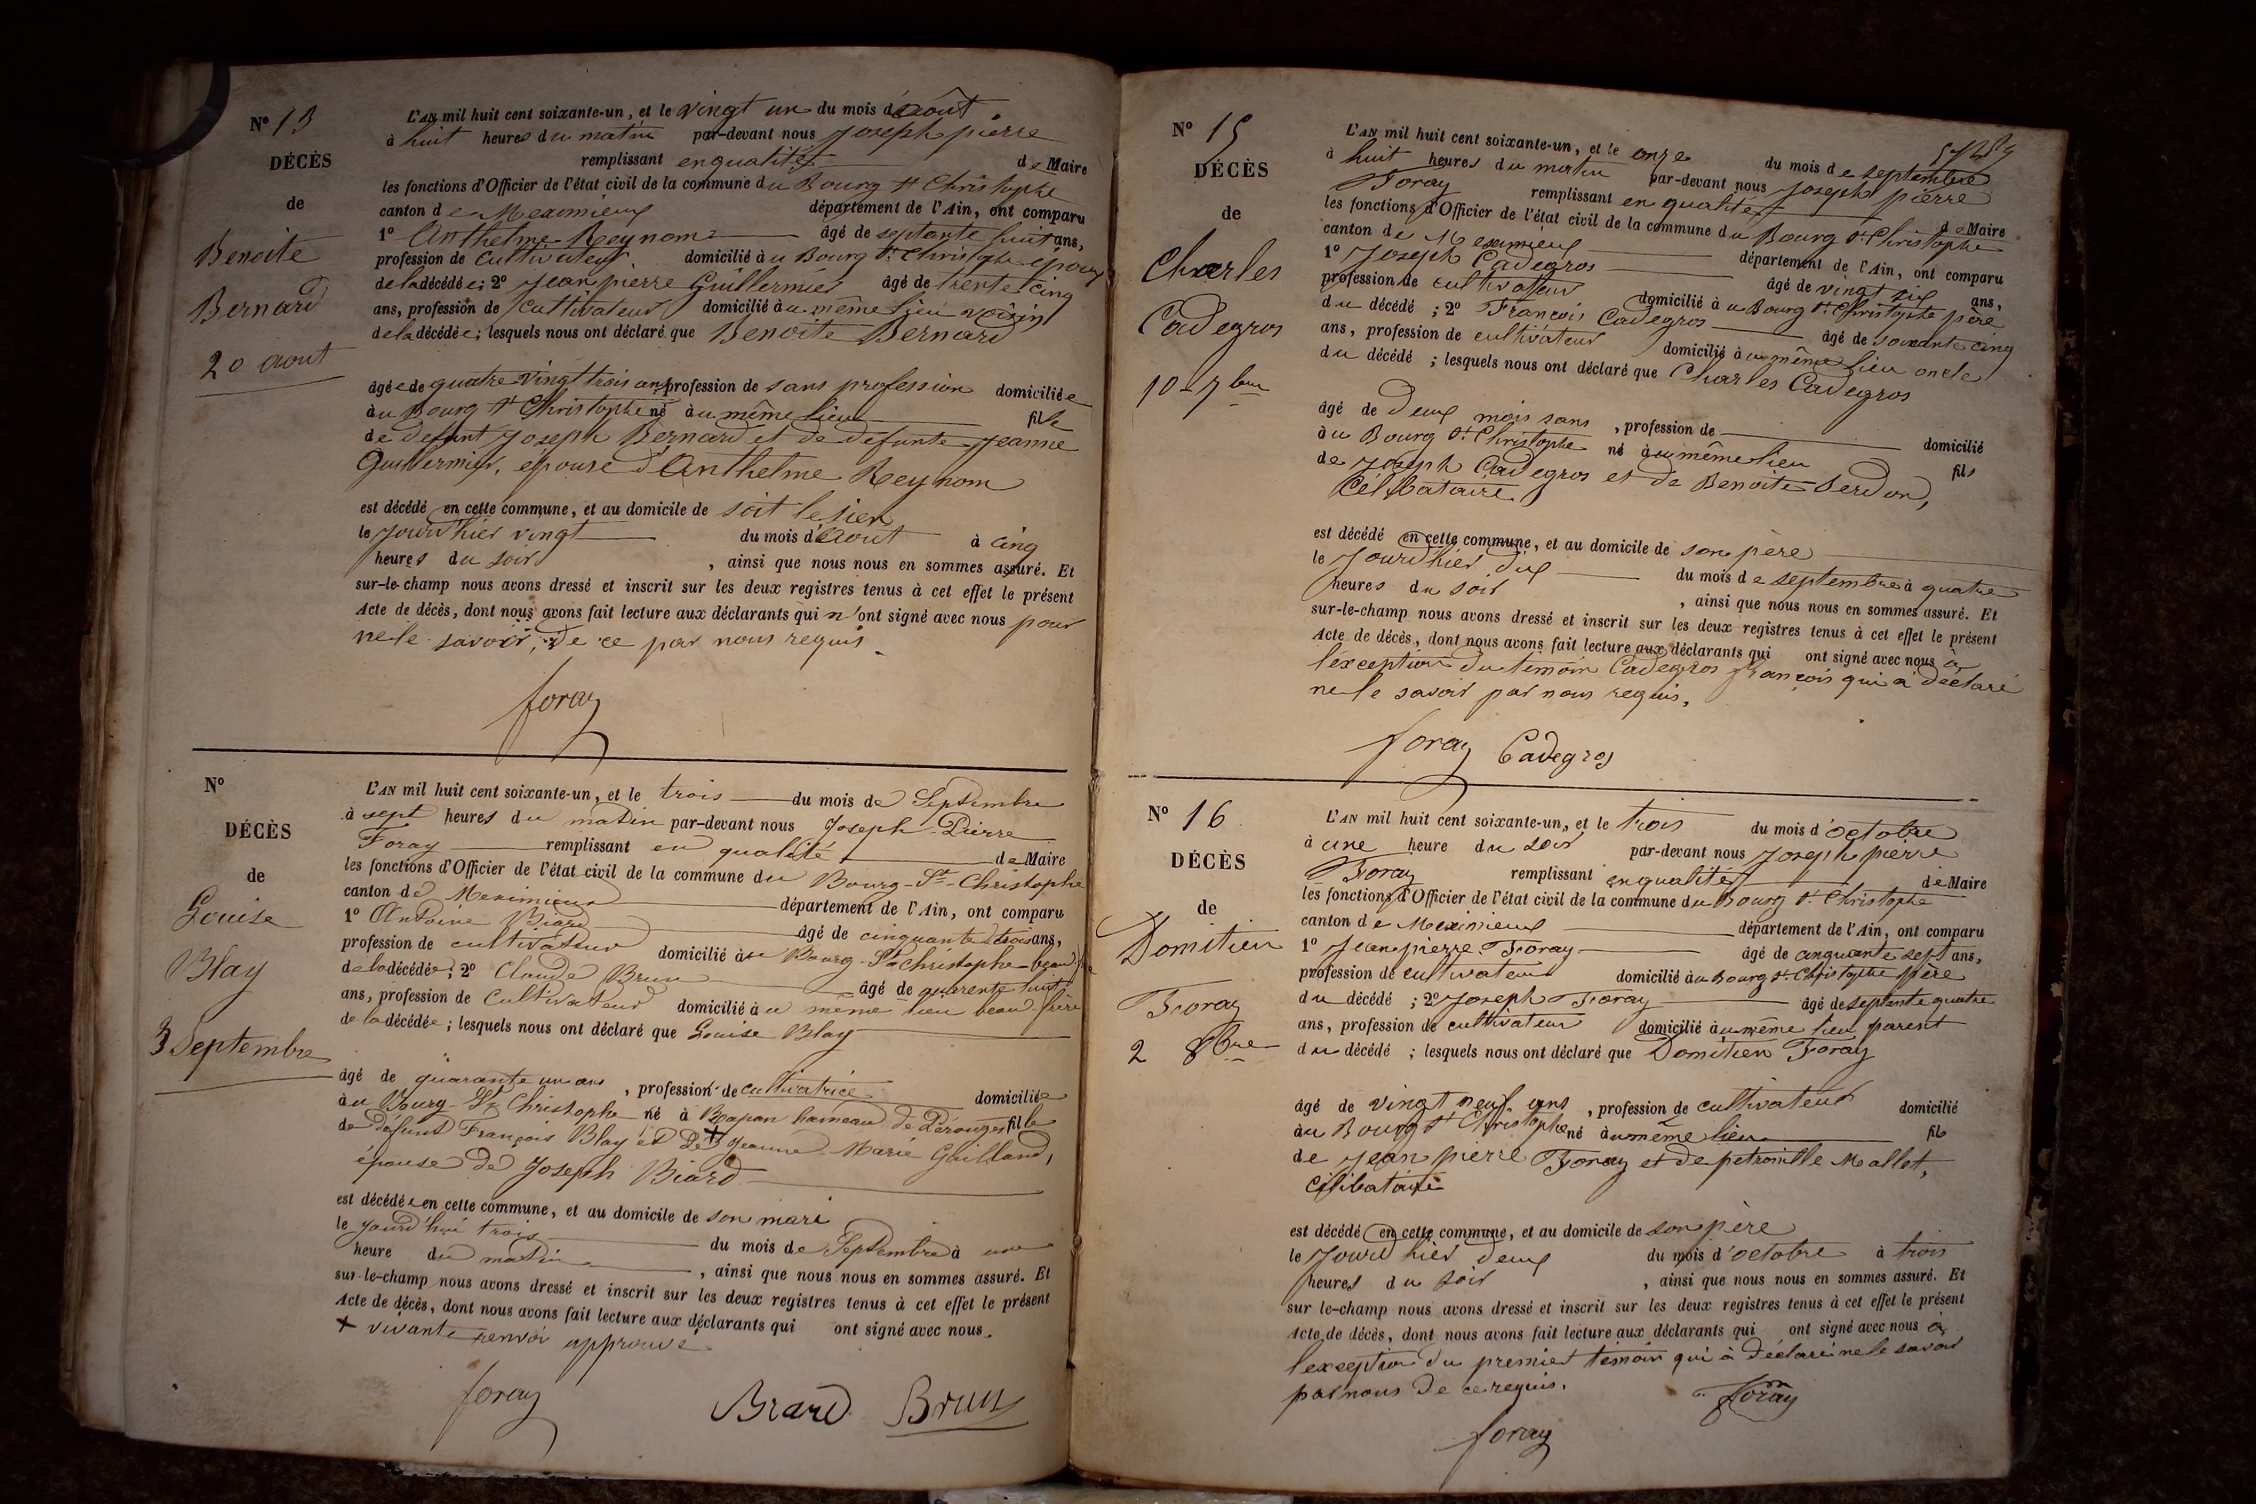 N° 13
DÉCÈS
de
Benoite
Bernard
20 aout
L'AN mil huit cent soixante-un, et le vingt un du mois d'août
à huit heures du matin par-devant nous Joseph pierre
remplissant en qualité de Maire
les fonctions d'Officier de l'état civil de la commune du Bourg St Christophe
canton de Meximieux département de l'Ain, ont comparu
1° Anthelme Reynom âgé de septante huit ans,
profession de cultivateur domicilié au Bourg St Christophe époux
de la décédée; 2° Jean pierre Guillermier âgé de trente cinq
ans, profession de cultivateur domicilié au même lieu voisin
de la décédée; lesquels nous ont déclaré que Benoite Bernard
âgée de quatre vingt trois ans profession de sans profession domiciliée
au Bourg St Christophe né au même lieu fille
de defunt Joseph Bernard et de defunte Jeanne
Guillermier, épouse d'Anthelme Reynom
est décédé en cette commune, et au domicile de soit le sien
le Jourd'hier vingt du mois d'aout à cinq
heures du soir, ainsi que nous nous en sommes assuré. Et
sur-le-champ nous avons dressé et inscrit sur les deux registres tenus à cet effet le présent
Acte de décès, dont nous avons fait lecture aux déclarants qui n'ont signé avec nous pour
ne le savoir, de ce par nous requis.
foray
N°
DÉCÈS
de
Louise
Blay
3 Septembre
L'AN mil huit cent soixante-un, et le trois du mois de Septembre
à sept heures du matin par-devant nous Joseph Pierre
Foray remplissant en qualité de Maire
les fonctions d'Officier de l'état civil de la commune du Bourg-St-Christophe
canton de Meximieux département de l'Ain, ont comparu
1° Antoine Biard âgé de cinquante trois ans,
profession de cultivateur domicilié au Bourg-St-Christophe beau père
de la décédée; 2° Claude Brun âgé de quarente huit
ans, profession de cultivateur domicilié au même lieu beau frère
de la décédée; lesquels nous ont déclaré que Louise Blay
âgé de quarante un ans, profession de cultivatrice domiciliée
au Bourg-St-Christophe né à Rapan hameau de Pérouges fille
de défunt François Blay et de + Jeanne Marie Gailland,
épouse de Joseph Biard
est décédée en cette commune, et au domicile de son mari
le jourd'hui trois du mois de Septembre à une
heure du matin, ainsi que nous nous en sommes assuré. Et
sur-le-champ nous avons dressé et inscrit sur les deux registres tenus à cet effet le présent
Acte de décès, dont nous avons fait lecture aux déclarants qui ont signé avec nous.
+ vivante renvoi approuvé
foray Biard Brun
N° 15
DÉCÈS
de
Charles
Cadegros
10 7bre
L'AN mil huit cent soixante-un, et le onze du mois de septembre
à huit heures du matin par-devant nous Joseph pierre
Foray remplissant en qualité de Maire
les fonctions d'Officier de l'état civil de la commune du Bourg St Christophe
canton de Meximieux département de l'Ain, ont comparu
1° Joseph Cadegros âgé de vingt six ans,
profession de cultivateur domicilié à u Bourg St Christophe père
du décédé; 2° François Cadegros âgé de soixante cinq
ans, profession de cultivateur domicilié au même lieu oncle
du décédé; lesquels nous ont déclaré que Charles Cadegros
âgé de deux mois sans, profession de domicilié
au Bourg St Christophe né au même lieu fils
de Joseph Cadegros et de Benoite Serdon,
Célibataire
est décédé en cette commune, et au domicile de son père
le Jourd'hier dix du mois de septembre à quatre
heures du soir, ainsi que nous nous en sommes assuré. Et
sur-le-champ nous avons dressé et inscrit sur les deux registres tenus à cet effet le présent
Acte de décès, dont nous avons fait lecture aux déclarants qui ont signé avec nous à
l'exception du temoin Cadegros françois qui a déclaré
ne le savoir par nous requis.
foray Cadegros
N° 16
DÉCÈS
de
Domitien
Foray
2 8bre
L'AN mil huit cent soixante-un, et le trois du mois d'octobre
à une heure du soir par-devant nous Joseph pierre
Foray remplissant en qualité de Maire
les fonctions d'Officier de l'état civil de la commune du Bourg St Christophe
canton de Meximieux département de l'Ain, ont comparu
1° Jean pierre Foray âgé de cinquante sept ans,
profession de cultivateur domicilié au Bourg St Christophe père
du décédé; 2° Joseph Foray âgé de septante quatre
ans, profession de cultivateur domicilié au même lieu parent
du décédé; lesquels nous ont déclaré que Domitien Foray
âgé de vingt neuf ans, profession de cultivateur domicilié
au Bourg St Christophe né au même lieu fils
de Jean pierre Foray et de petronille Mallet,
célibataire
est décédé en cette commune, et au domicile de son père
le Jourd'hier deux du mois d'octobre à trois
heures du soir, ainsi que nous nous en sommes assuré. Et
sur le-champ nous avons dressé et inscrit sur les deux registres tenus à cet effet le présent
Acte de décès, dont nous avons fait lecture aux déclarants qui ont signé avec nous à
l'exception du premier temoin qui à déclaré ne le savoir
par nous de ce requis.
foray
foray